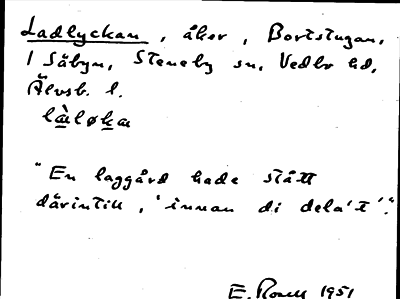 Ladlyckan, åker, Bortstugan,
1 Säbyn, Steneby sn, Vedbo hd,
Älvsb. l.
"En laggård hade stått
därintill, 'innan di dela't'".
E. Rosell 1951